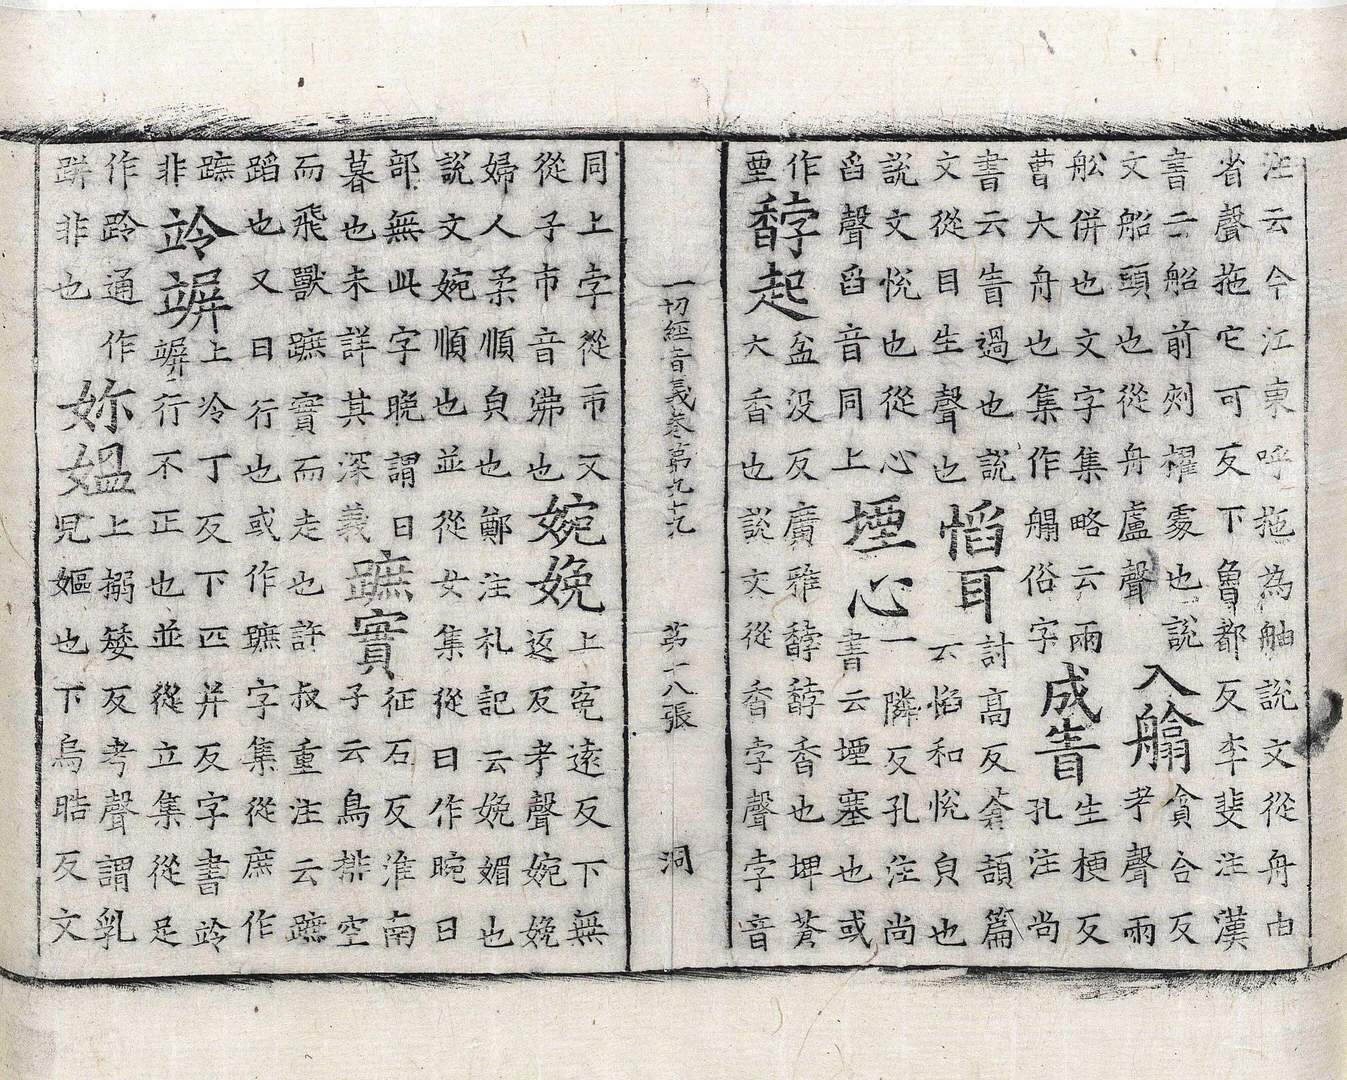 注云今江東呼拖為舳說文從舟由
省聲拖它可反下魯都反李斐注漢
書云船前刾櫂䖏也說
文船頭也從舟盧聲
入艙
貪合反
考聲兩
舩併也文字集略云兩
曹大舟也集作艒俗字
成眚
生梗反
孔注尚
書云眚過也說
文從目生聲也
慆耳
討高反蒼頡篇
云慆和悅皃也
說文悅也從心
舀聲舀音同上
堙心
一隣反孔注尚
書云堙塞也或
作
垔
馞起
盆没反廣雅馞馞香也埤蒼
大香也說文從香孛聲孛音
一切經音義卷第九十九　第十八張　洞
同上孛從市又
從子市音㳈也
婉娩
上寃遠反下無
返反考聲婉娩
婦人柔順皃也鄭注礼記云娩媚也
說文婉順也並從女集從日作晼日
部無此字晚謂日
暮也未詳其深義
蹠實
征石反淮南
子云鳥排空
而飛獸蹠實而走也許叔重注云蹠
蹈也又曰行也或作蹠字集從庶作
蹠
非
竛竮
上冷丁反下匹并反字書竛
竮行不正也並從立集從足
作跉通作
跰非也
妳媼
上搦矮反考聲謂乳
兒嫗也下烏晧反文